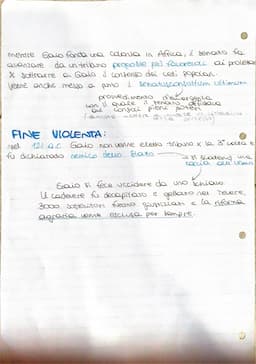 mentre Gaio fonda una colonia in Africa, il senato fa
avanzare da un tribuno proposte più favorevoli ai proletari
x sottrarre a Gaio il consenso dei ceti popolari.
Venne anche messo a punto il senatusconsultum ultimum
provvedimento d'emergenza
con il quale il senato affidava
ai consoli pieni poteri
FINE VIOLENTA:
nel 121 a.C Gaio non venne eletto tribuno x la 3° volta e
fu dichiarato nemico dello Stato
si scatenò una
caccia all'uomo
Gaio si fece uccidere da uno schiavo
Il cadavere fu decapitato e gettato nel Tevere,
3000 sostenitori furono giustiziati e la riforma
agraria venne esclusa per sempre.